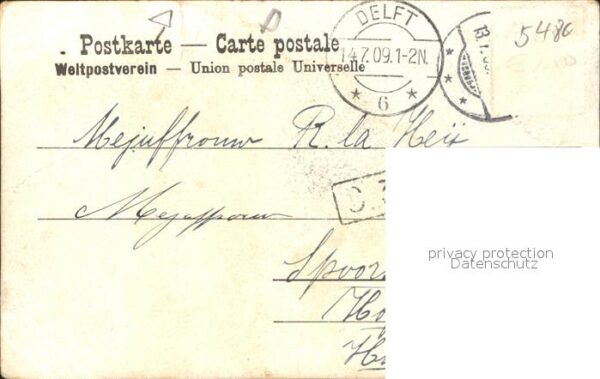 5480
Postkarte — Carte postale
Weltpostverein — Union postale Universelle
DELFT
14.7.09.1-2N.
* 6 *
13.
Mejuffrouw R. la Heij
Mejuffrouw
Spoor
Ho
privacy protection
Datenschutz